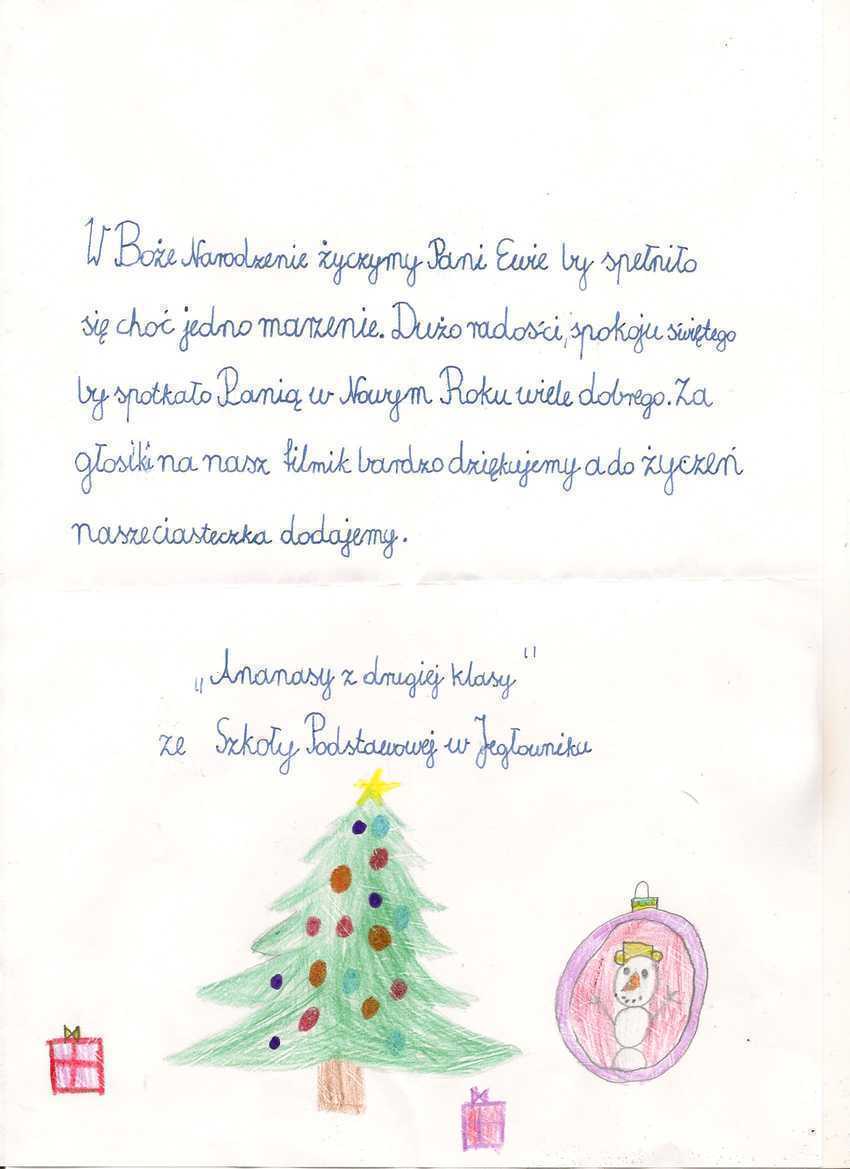 W Boże Narodzenie życzymy Pani Ewie by spełniło
się choć jedno marzenie. Dużo radości, spokoju świętego
by spotkało Panią w Nowym Roku wiele dobrego. Za
głosiki na nasz filmik bardzo dziękujemy a do życzeń
nasze ciasteczka dodajemy.
„Ananasy z drugiej klasy"
ze Szkoły Podstawowej w Jegłowniku